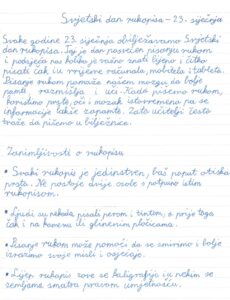 Svjetski dan rukopisa - 23. siječnja
Svake godine 23. siječnja obilježavamo Svjetski
dan rukopisa. Taj je dan posvećen pisanju rukom
i podsjeća nas koliko je važno znati lijepo i čitko
pisati čak i u vrijeme računala, mobitela i tableta.
Pisanje rukom pomaže našem mozgu da bolje
pamti, razmišlja i uči. Kada pišemo rukom,
koristimo prste, oči i mozak istovremeno pa se
informacije lakše zapamte. Zato učitelji često
traže da pišemo u bilježnice.
Zanimljivosti o rukopisu
• Svaki rukopis je jedinstven, baš poput otiska
prsta. Ne postoje dvije osobe s potpuno istim
rukopisom.
• Ljudi su nekada pisali perom i tintom, a prije toga
čak i na kamenu ili glinenim pločicama.
• Pisanje rukom može pomoći da se smirimo i bolje
izrazimo svoje misli i osjećaje.
• Lijep rukopis zove se kaligrafija i u nekim se
zemljama smatra pravom umjetnošću.